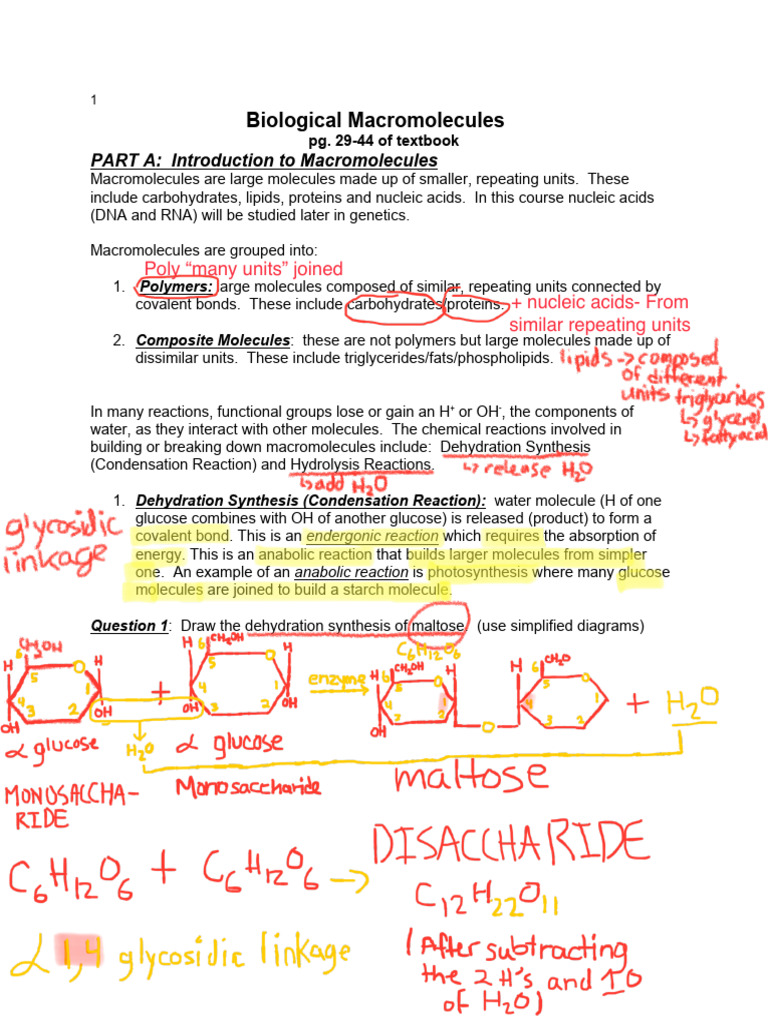 1
Biological Macromolecules
pg. 29-44 of textbook
PART A:  Introduction to Macromolecules
Macromolecules are large molecules made up of smaller, repeating units.  These
include carbohydrates, lipids, proteins and nucleic acids.  In this course nucleic acids
(DNA and RNA) will be studied later in genetics.
Macromolecules are grouped into:
Poly “many units” joined
1. Polymers: large molecules composed of similar, repeating units connected by
covalent bonds.  These include carbohydrates/proteins. + nucleic acids- From
similar repeating units
2. Composite Molecules:  these are not polymers but large molecules made up of
dissimilar units.  These include triglycerides/fats/phospholipids. lipids → composed
of different
units triglycerides
↳ glycerol
↳ fatty acid
In many reactions, functional groups lose or gain an H+ or OH-, the components of
water, as they interact with other molecules.  The chemical reactions involved in
building or breaking down macromolecules include:  Dehydration Synthesis
(Condensation Reaction) and Hydrolysis Reactions. ↳ release H2O
↳ add H2O
1. Dehydration Synthesis (Condensation Reaction):  water molecule (H of one
glucose combines with OH of another glucose) is released (product) to form a
covalent bond. This is an endergonic reaction which requires the absorption of
energy. This is an anabolic reaction that builds larger molecules from simpler
one.  An example of an anabolic reaction is photosynthesis where many glucose
molecules are joined to build a starch molecule.
glycosidic
linkage
Question 1:  Draw the dehydration synthesis of maltose.  (use simplified diagrams)
C6H12O6
6 CH2OH H 6 CH2OH H 6 CH2OH H H 6 CH2O
H 5 O H 5 enzyme H 5 O 5 O
4 1 + 4 1 4 1 4 1 + H2O
OH 3 2 OH OH 3 2 OH OH 3 2 O 3 2
α glucose H2O α glucose
maltose
MONOSACCHA-
RIDE
Monosaccharide
DISACCHARIDE
C6H12O6 + C6H12O6 →
C12H22O11
α 1,4 glycosidic linkage
(After subtracting
the 2 H's and 1 O
of H2O)